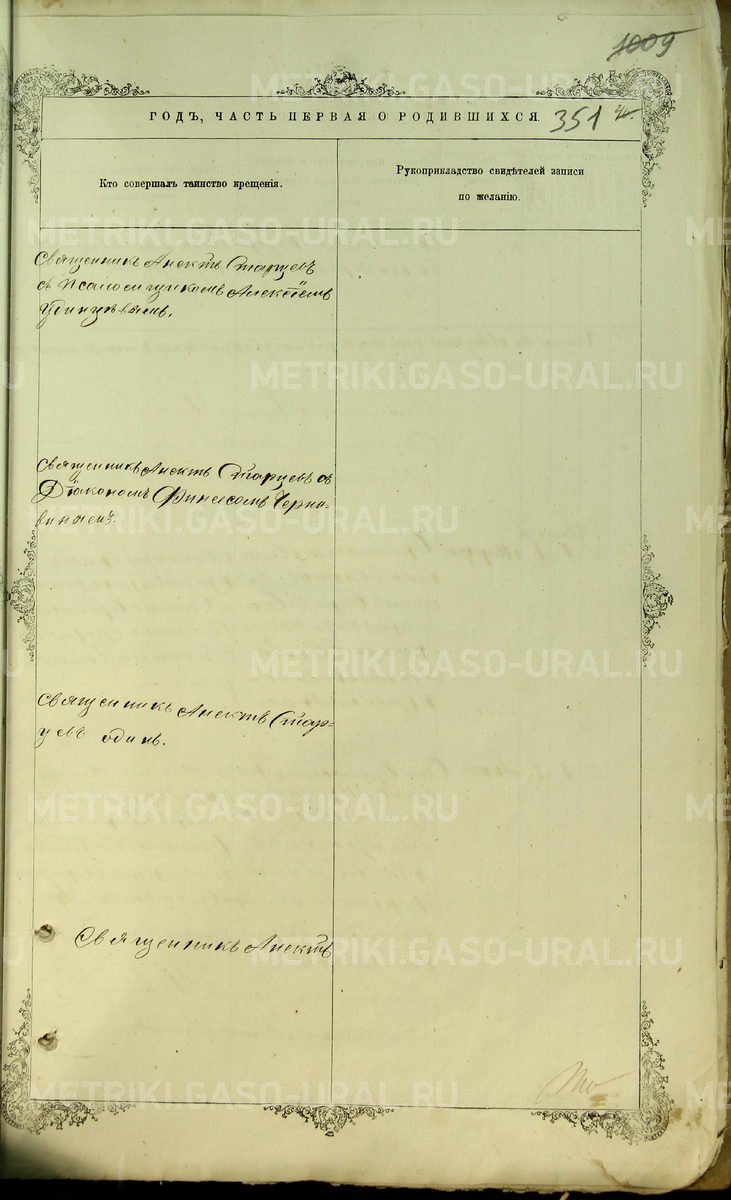 1009
ГОДЪ, ЧАСТЬ ПЕРВАЯ О РОДИВШИХСЯ. 351
Кто совершалъ таинство крещенія.
Рукоприкладство свидѣтелей записи
по желанію.
Священникъ Анектъ Старцевъ
съ Псаломщикомъ Алексѣемъ
Удинцевымъ.
Священникъ Анектъ Старцевъ съ
Діакономъ Финеесомъ Черна-
винымъ.
Священникъ Анектъ Стар-
цевъ одинъ.
Священникъ Анектъ
METRIKI.GASO-URAL.RU